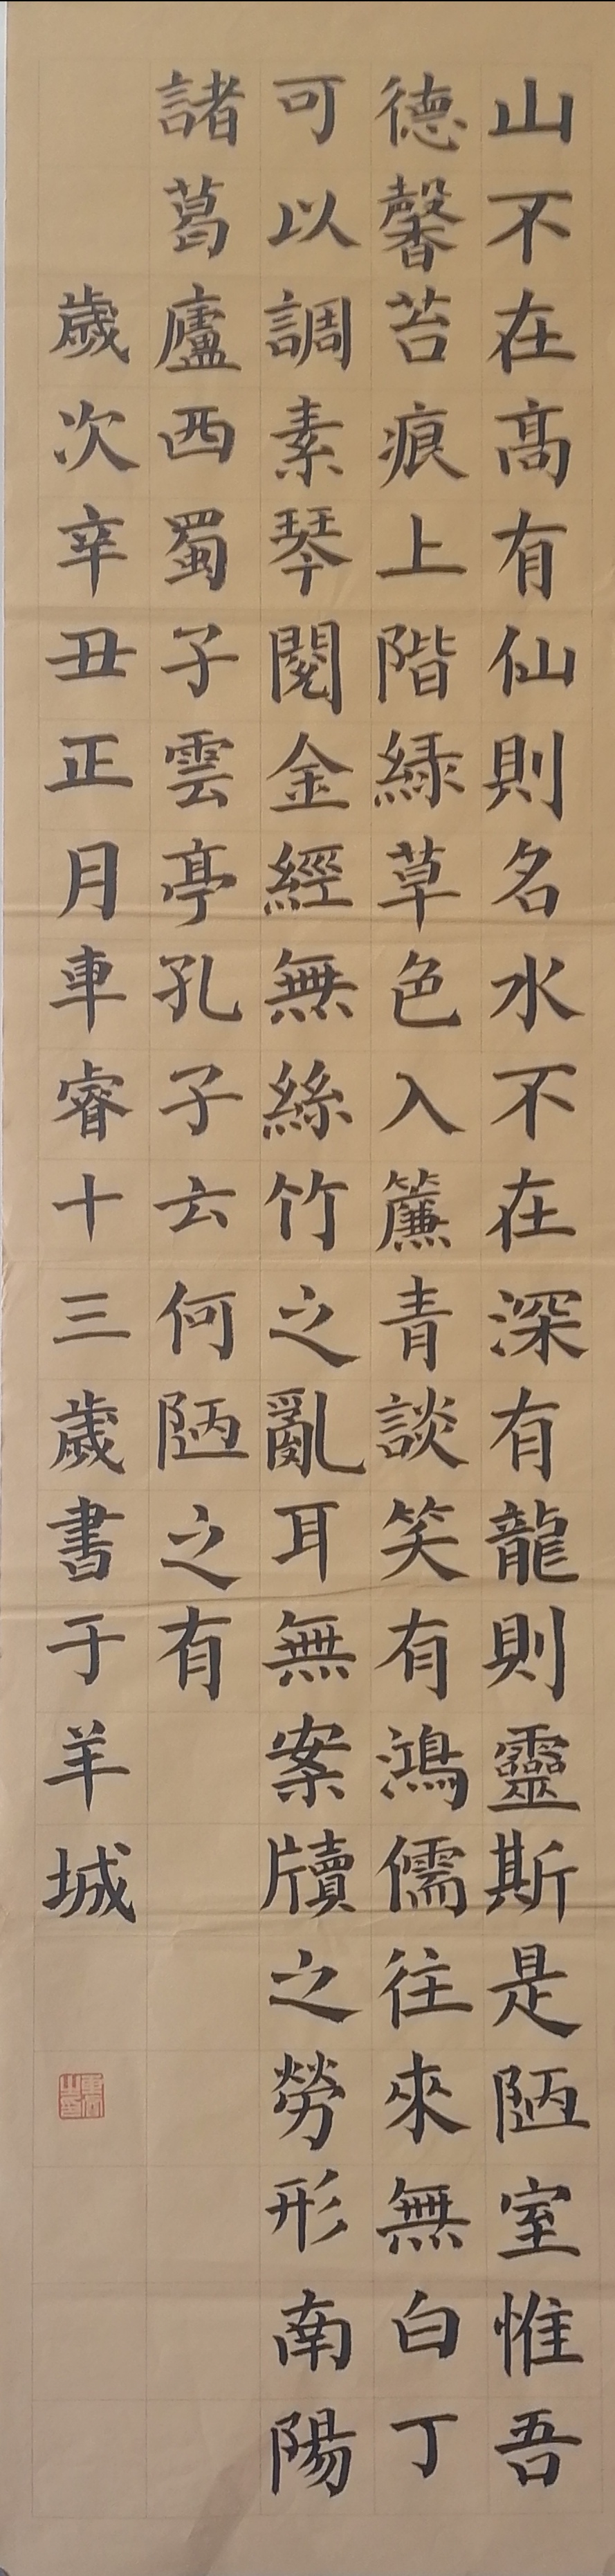 山不在高有仙則名水不在深有龍則靈斯是陋室惟吾
德馨苔痕上階緑草色入簾青談笑有鴻儒往來無白丁
可以調素琴閱金經無絲竹之亂耳無案牘之勞形南陽
諸葛廬西蜀子雲亭孔子云何陋之有
歲次辛丑正月車睿十三歲書于羊城